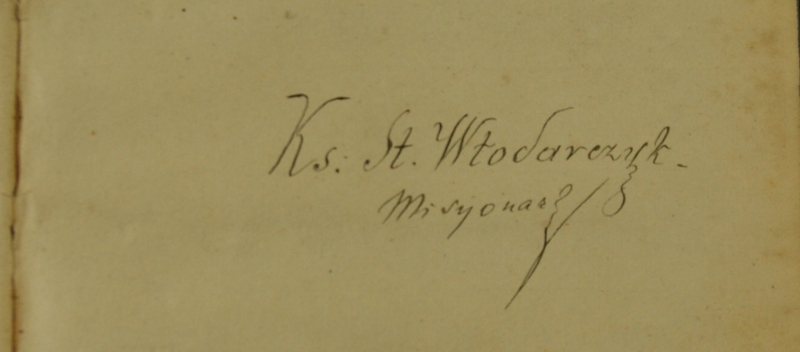 Ks. St. Włodarczyk.
Misyonarz